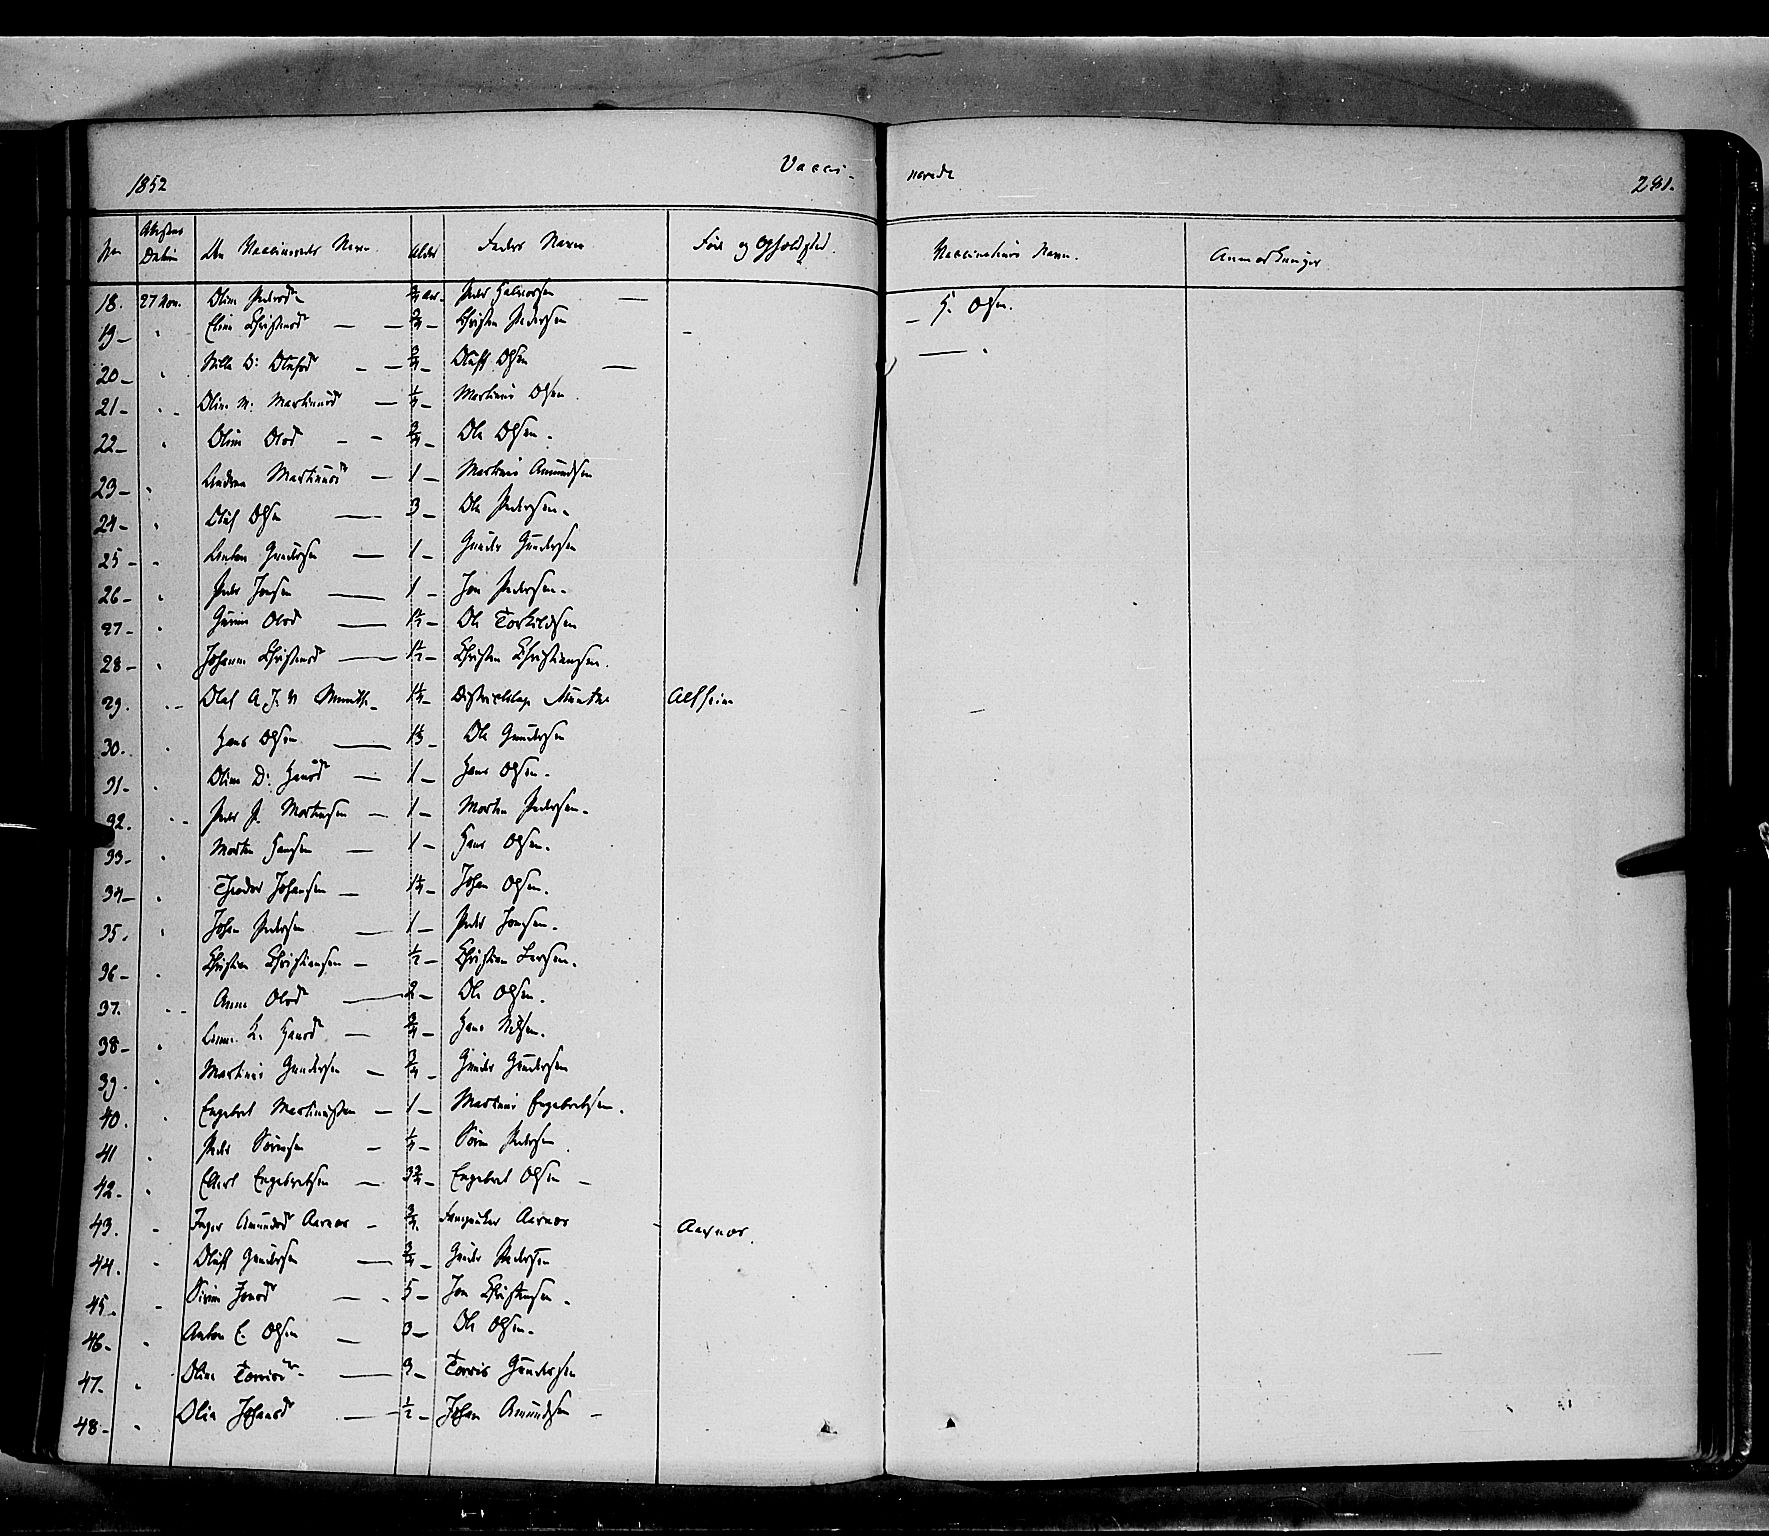 1852 Vacci- nerede 291.
No Attestens Datum Den Vaccineredes Navn. Alder Faders Navn Føde og Opholdsted. Vaccinateurs Navn. Anmærkninger.
18. 27 Nov. Oline Pedersdr 3/4 Aar. Peder Halvorsen — S. Olsen.
19- " Eline Christensdr — — 3/4- Christen Pedersen
20- " Mille D: Olufsdr - — 3/4- Oluff Olsen —
21- " Oline M. Martinusdr — 1/4- Martinus Olsen
22- " Oline Olsdr - - 3/4- Ole Olsen.
23- " Andrea Martinusdr — 1- Martinus Amundsen
24- " Oluf Olsen — 3- Ole Pedersen.
25- " Anton Gundersen — 1- Gunder Gundersen
26- " Peder Jonsen — 1- Jon Pedersen.
27- " Olsdr — 1 1/2- Ole Torkildsen
28- " Johanne Christensdr — 1 1/2- Christen Christiansen.
29. " Olaf A. J. Munthe- 1 1/4- Districtslæge Munthe
30. " Hans Olsen — Ole Gundersen
31- " Oline D: Hansdr — 1- Hans Olsen.
32. " Peder P. Mortensen — 1- Morten Pedersen.
33- " Morten Hansen — 1- Hans Olsen.
34- " Theodor Johansen — 1 1/4- Johan Olsen.
35. " Johan Pedersen — 1- Peder Jonsen.
36- " Christian Christiansen - 1/2- Christian Larsen.
37. " Anne Olsdr — 2- Ole Olsen.
38- " K. Hansdr — 3/4- Hans Nilsen.
39. " Martinus Gundersen — 3/4- Gunder Gundersen
40. " Engebret Martinussen — 1- Martinus Engebretsen.
41 " Peder Sørensen - 1/4- Søren Pedersen
42. " Carl Engebretsen — 3 3/4- Engebret Olsen -
43. " Inger Amundsdr Aarnæs - 3/4. Aarnæs - Aarnæs.
44. " Oluff Gundersen — 3/4- Gunder Pedersen
45- " Sirine Jonsdr — 5- Jon Christensen.
46- " Anton E. Olsen — 3- Ole Olsen.
47. " Oline Torrisdr — Torris Gundersen
48- " Olia Johansdr — 1/2- Johan Amundsen -